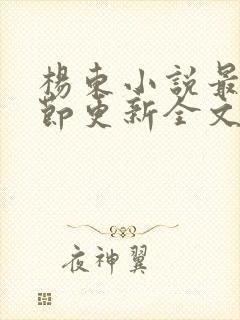 楊東小說最
節更新全文
夜神翼